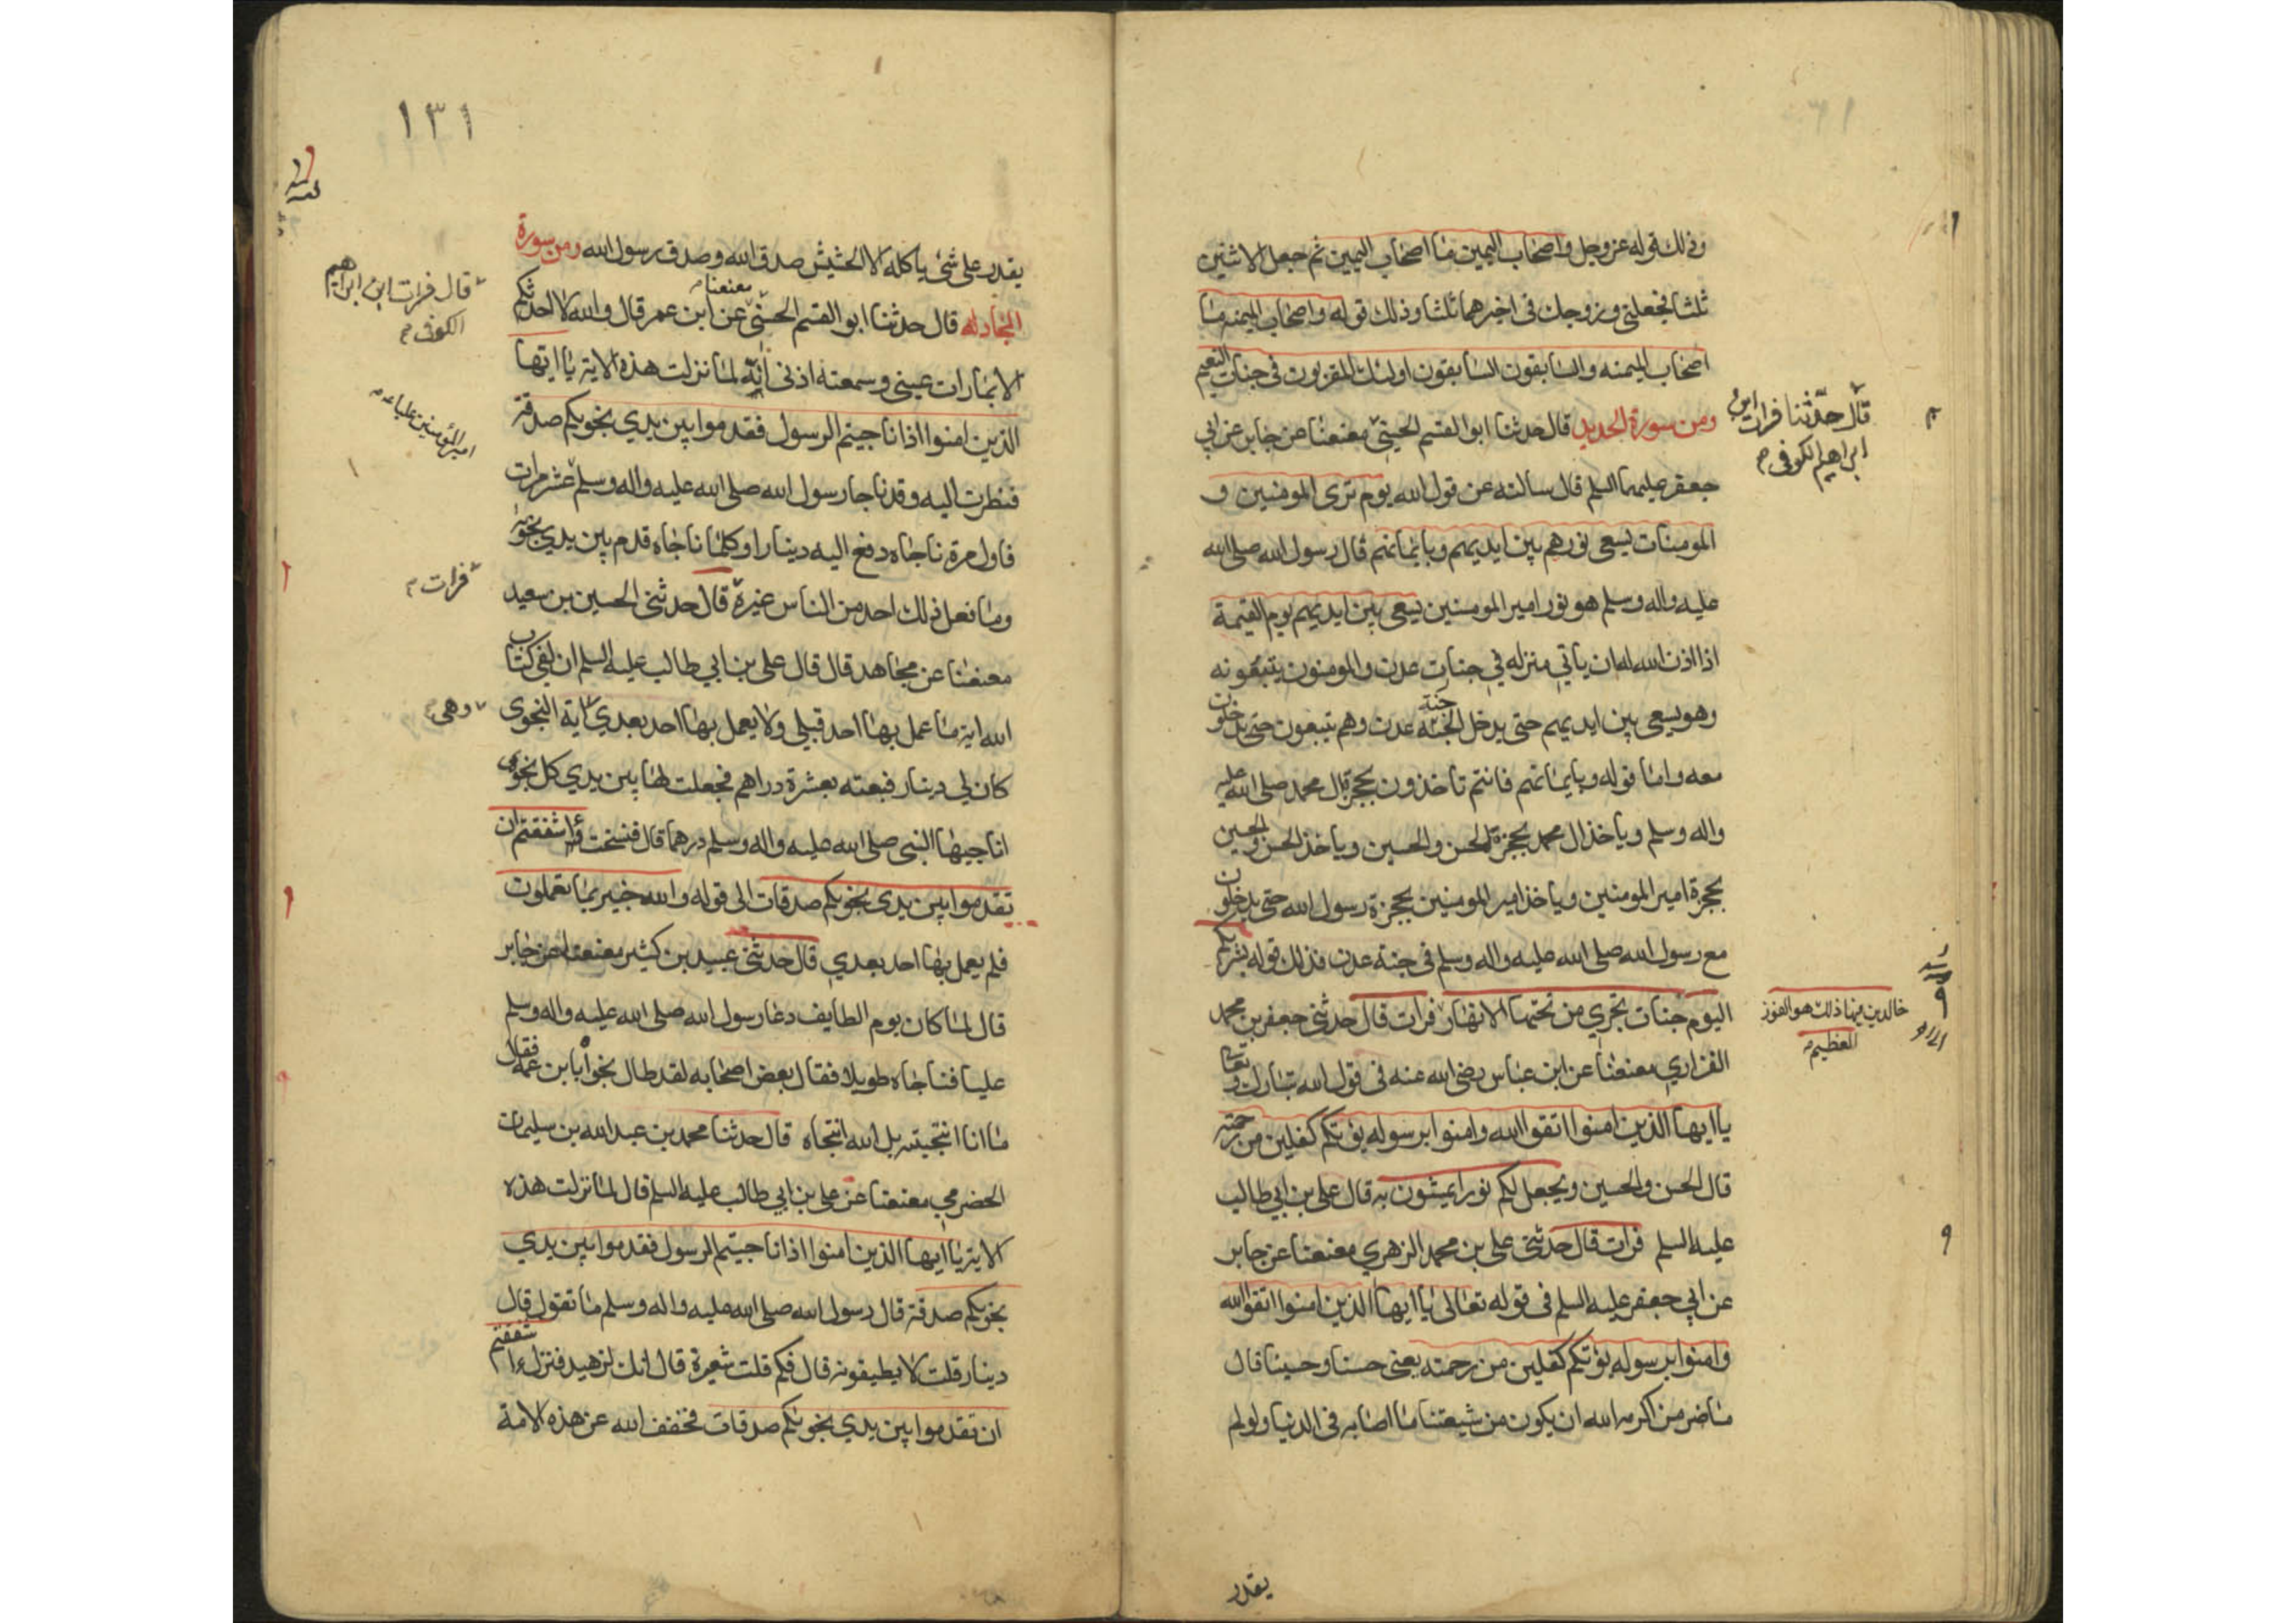 وذلك قوله عز وجل واصحاب اليمين ما اصحاب اليمين ثم جعل الاثنين
ثلثا فجعلني وزوجك في اخيرهما ثلثا وذلك قوله واصحاب الميمنه ما
اصحاب الميمنه والسابقون السابقون اولئك المقربون في جنات النعيم
ومن سورة الحديد قال حدثنا ابو القسم الحسني معنعنا عن جابر عن ابي
قال حدثنا فرات ابن
ابراهيم الكوفي
جعفر عليهما السلم قال سالته عن قول الله يوم ترى المومنين و
المومنات يسعى نورهم بين ايديهم وبايمانهم قال رسول الله صلى الله
عليه واله وسلم هو نور امير المومنين يسعى بين ايديهم يوم القيمة
اذا اذن الله له ان ياتي منزله في جنات عدن والمومنون يتبعونه
وهو يسعى بين ايديهم حتى يدخل الجنه جنة عدن وهم يتبعون حتى يدخلون
معه واما قوله وبايمانهم فانتم تاخذون بحجزة ال محمد صلى الله عليه
واله وسلم وياخذ ال محمد بحجزة الحسن والحسين وياخذ الحسن والحسين
بحجزة امير المومنين وياخذ امير المومنين بحجزة رسول الله حتى يدخلون
مع رسول الله صلى الله عليه واله وسلم في جنة عدن فذلك قوله بشريكم
اليوم جنات تجري من تحتها الانهار فرات قال حدثني جعفر بن محمد
خالدين فيها ذلك هو الفوز
العظيم
الفزاري معنعنا عن ابن عباس رضي الله عنه في قول الله تبارك وتعالى
يا ايها الذين امنوا اتقوا الله وامنوا برسوله يؤتكم كفلين من رحمته
قال الحسن والحسين ويجعل لكم نورا تمشون به قال علي بن ابي طالب
عليه السلم فرات قال حدثني علي بن محمد الزهري معنعنا عن جابر
عن ابي جعفر عليه السلم في قوله تعالى يا ايها الذين امنوا اتقوا الله
وامنوا برسوله يؤتكم كفلين من رحمته يعني حسنا وحسينا قال
ما ضر من اكرمه الله ان يكون من شيعتنا ما اصابه في الدنيا ولو لم
يقدر
١٣١
يقدر على شئ ياكله الا الحشيش صدق الله وصدق رسول الله ومن سورة
المجادله قال حدثنا ابو القسم الحسني معنعنا عن ابن عمر قال والله لاحدثكم
قال فرات ابن ابراهيم
الكوفي
الا بما رات عيني وسمعته اذني انه لما نزلت هذه الاية يا ايها
الذين امنوا اذا ناجيتم الرسول فقدموا بين يدي نجويكم صدقة
امير المؤمنين عليا
فنظرت اليه وقد ناجا رسول الله صلى الله عليه واله وسلم عشر مرات
فاول مرة ناجاه دفع اليه دينارا وكلما ناجاه قدم بين يدي نجويه
وما فعل ذلك احد من الناس غيره قال حدثني الحسين بن سعيد
فرات
معنعنا عن مجاهد قال قال علي بن ابي طالب عليه السلم ان لفي كتاب
الله اية ما عمل بها احد قبلي ولا يعمل بها احد بعدي اية النجوى
وهي
كان لي دينار فبعته بعشرة دراهم فجعلت لها بين يدي كل نجوى
اناجيها النبي صلى الله عليه واله وسلم درهما قال فنسخت ءاشفقتم ان
تقدموا بين يدي نجويكم صدقات الى قوله والله خبير بما تعملون
فلم يعمل بها احد بعدي قال حدثني عبيد بن كثير معنعنا عن جابر
قال لما كان يوم الطايف دعا رسول الله صلى الله عليه واله وسلم
عليا فناجاه طويلا فقال بعض اصحابه لقد طال نجواه بابن عمه فقال
ما انا انتجيته بل الله انتجاه قال حدثنا محمد بن عبد الله بن سليمان
الحضرمي معنعنا عن علي بن ابي طالب عليه السلم قال لما نزلت هذه
الاية يا ايها الذين امنوا اذا ناجيتم الرسول فقدموا بين يدي
نجويكم صدقة قال رسول الله صلى الله عليه واله وسلم ما تقول قال
دينار قلت لا يطيقونه قال فكم قلت شعيرة قال انك لزهيد فنزل ءاشفقتم
ان تقدموا بين يدي نجويكم صدقات فخفف الله عن هذه الامة